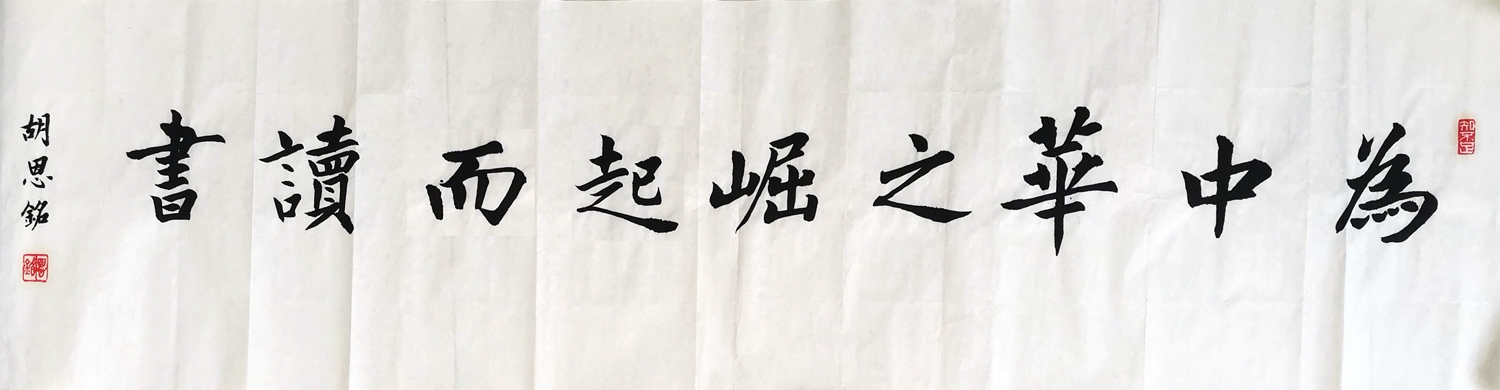 為中華之崛起而讀書
胡思銘
知不足